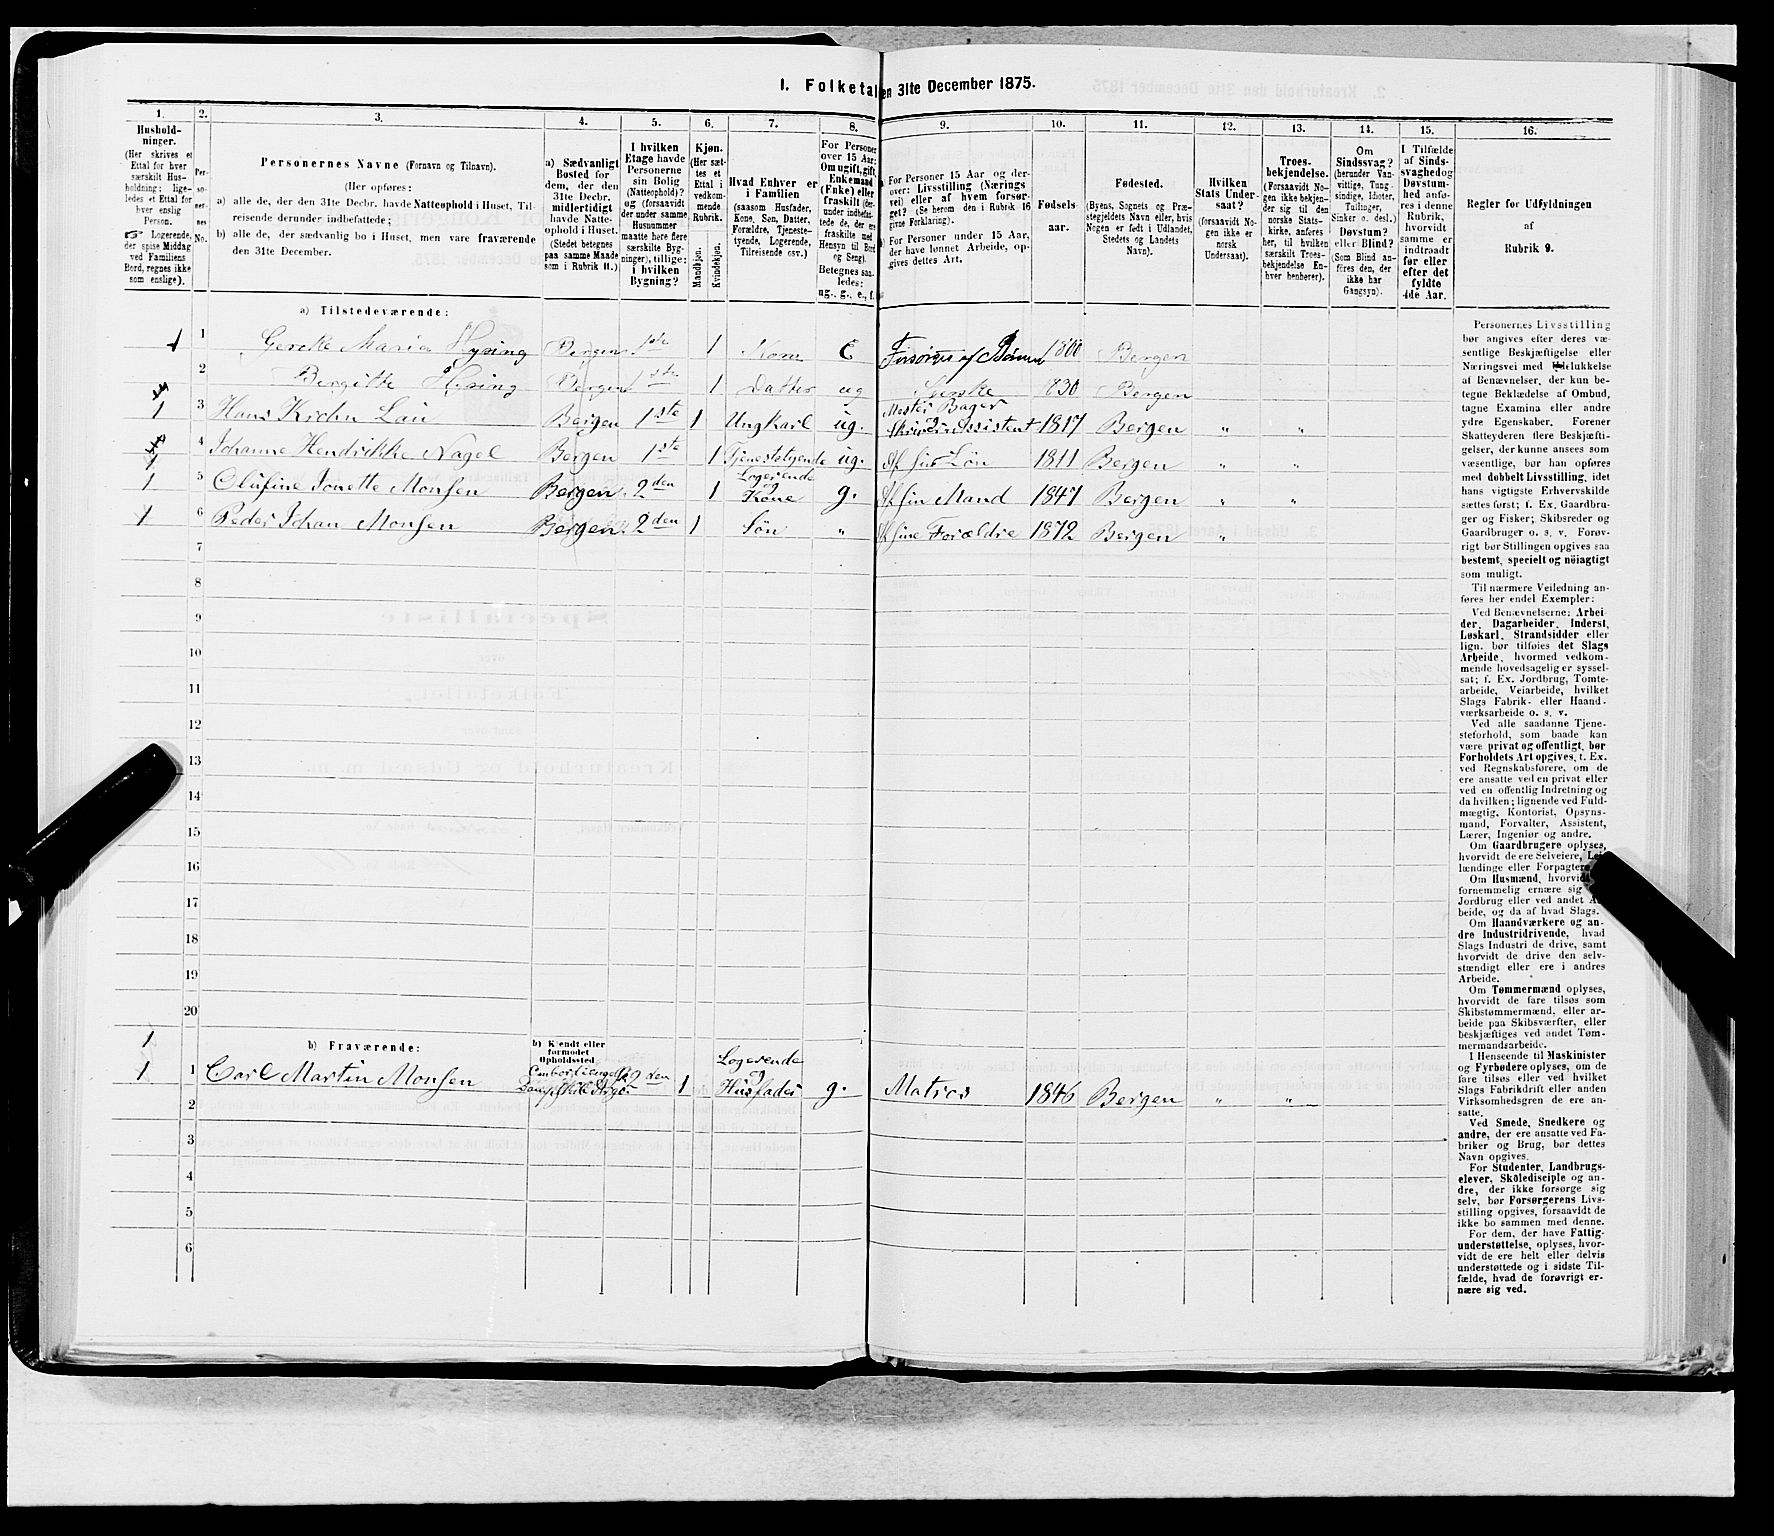 I. Folketal den 31te December 1875.
1. 2. 3. 4. 5. 6. 7. 8. 9. 10. 11. 12. 13. 14. 15. 16.
Hushold-
ninger.
(Her skrives et
Ettal for hver
særskilt Hus-
holdning; lige-
ledes et Ettal for
hver enslig
Person.
☞ Logerende,
der spise Middag
ved Familiens
Bord, regnes ikke
som enslige).
Per-
so-
ner-
nes
No.
Personernes Navne (Fornavn og Tilnavn).
(Her opføres:
a) alle de, der den 31te Decbr. havde Natteophold i Huset, Til-
reisende derunder indbefattede;
b) alle de, der sædvanlig bo i Huset, men vare fraværende
den 31te December.
a) Sædvanligt
Bosted for
dem, der den
31te Decbr.
midlertidigt
havde Natte-
ophold i Huset.
(Stedet betegnes
paa samme Maade
som i Rubrik 11.)
I hvilken
Etage havde
Personerne
sin Bolig
(Natteophold)?
og (forsaavidt
der under samme
Husnummer
maatte høre flere
særskilte Byg-
ninger), tillige:
i hvilken
Bygning?
Kjøn.
(Her sæt-
tes et
Ettal i
vedkom-
mende
Rubrik.
Mandkjøn.
Kvindekjøn.
Hvad Enhver er
i Familien
(saasom Husfader,
Kone, Søn, Datter,
Forældre, Tjeneste-
tyende, Logerende,
Tilreisende osv.)
For Personer
over 15 Aar:
Om ugift, gift,
Enkemand
(Enke) eller
fraskilt (der-
under indbefat-
tede de, der ere
fraskilte med
Hensyn til Bord
og Seng).
Betegnes saa-
ledes:
ug., g., e., f.
For Personer 15 Aar og der-
over: Livsstilling (Nærings
vei) eller af hvem forsør-
get? (Se herom den i Rubrik 16
givne Forklaring).
For Personer under 15 Aar,
der have lønnet Arbeide, op-
gives dettes Art.
Fødsels
aar.
Fødested.
(Byens, Sognets og Præ-
stegjeldets Navn eller, hvis
Nogen er født i Udlandet,
Stedets og Landets
Navn).
Hvilken
Stats Under-
saat?
(forsaavidt No-
gen ikke er
norsk
Undersaat).
Troes-
bekjendelse.
(Forsaavidt No-
gen ikke bekjen-
der sig til den
norske Stats-
kirke, anføres
her, til hvilken
særskilt Troes-
bekjendelse En-
hver henhører).
Om
Sindssvag?
(herunder Van-
vittige, Tung-
sindige, Idioter,
Tullinger,
Sinker o. desl.)
Døvstum?
eller Blind?
(Som Blind an-
føres den, der
ikke har
Gangsyn).
I Tilfælde
af Sinds-
svaghed og
Døvstum-
hed anfø-
res i denne
Rubrik,
hvorvidt
samme er
indtraadt
før eller
efter det
fyldte
4de Aar.
Regler for Udfyldningen
af
Rubrik 9.
a) Tilstedeværende:
1 1 Gercke Maria Hysing Bergen 1ste 1 Kone E Forsørges af Børnene 1800 Bergen
2 Bergitte Hysing Bergen 1ste 1 Datter ug 1830 Bergen
Mester Bager
1 3 Hans Krohn Lau Bergen 1ste 1 Ungkarl ug. Assistent 1817 Bergen " "
4 Johanne Hendrikke Nagel Bergen 1ste 1 Tjenestetyende ug. Af sin Løn 1811 Bergen " "
Logerende
og
1 5 Olufine Jonette Monsen Bergen. 2den 1 Kone g. Af sin Mand 1847 Bergen " "
1 6 Peder Johan Monsen Bergen 2den 1 Søn " Af sine Forældre 1872 Bergen "
7
8
9
10
11
12
13
14
15
16
17
18
19
20
1
b) Fraværende:
b) Kjendt eller
formodet
Opholdssted
Logerende
og
1 1 Carl Martin Monsen 2den 1 Husfader g. Matros 1846 Bergen " "
2
3
4
5
6
Personernes Livsstilling
bør angives efter deres væ-
sentlige Beskjæftigelse eller
Næringsvei med Udelukkelse
af Benævnelser, der kun be-
tegne Beklædelse af Ombud,
tagne Examina eller andre
ydre Egenskaber. Forener
Skatteyderen flere Beskjæfti-
gelser, der kunne ansees som
væsentlige, bør han opføres
med dobbelt Livsstilling, idet
hans vigtigste Erhvervskilde
sættes først; f. Ex. Gaardbru-
ger og Fisker; Skibsreder og
Gaardbruger o. s. v. Forøv-
rigt bør Stillingen opgives saa
bestemt, specielt og nøiagtigt
som muligt.
Til nærmere Veiledning an-
føres her endel Exempler:
Ved Benævnelserne: Arbei-
der, Dagarbeider, Inderst,
Løskarl, Strandsidder eller
lign. bør tilføies det Slags
Arbeide, hvormed vedkom-
mende hovedsagelig er syssel-
sat; f. Ex. Jordbrug, Tomte-
arbeide, Veiarbeide, hvilket
Slags Fabrik- eller Haand-
værksarbeide o. s. v.
Ved alle saadanne Tjene-
steforhold, som baade kan
være privat og offentligt, bør
Forholdets Art opgives, t. Ex.
ved Regnskabsførere, om de
ere ansatte ved en privat eller
ved en offentlig Indretning og
da hvilken; lignende ved Fuld-
mægtig, Kontorist, Opsyns-
mand, Forvalter, Assistent,
Lærer, Ingeniør og andre.
Om Gaardbrugere oplyses,
hvorvidt de ere Selveiere, Lei-
lændinge eller Forpagtere.
Om Husmænd, hvorvidt
fornemmelig ernære sig
Jordbrug eller ved andet Ar-
beide, og da af hvad Slags.
Om Haandværkere og an-
dre Industridrivende, hvad
Slags Industri de drive, samt
hvorvidt de drive den selv-
stændigt eller ere i andres
Arbeide.
Om Tømmermænd oplyses,
hvorvidt de fare tilsøs som
Skibstømmermænd, eller ar-
beide paa Skibsværfter, eller
beskjæftiges ved andet Tøm-
mermandsarbeide.
I Henseende til Maskinister
og Fyrbødere oplyses, om de
fare tilsøs eller ved hvilket
Slags Fabrikdrift eller anden
Virksomhedsgren de ere an-
satte.
Ved Smede, Snedkere og
andre, der ere ansatte ved Fa-
briker og Brug, bør dettes
Navn opgives.
For Studenter, Landbrugs-
elever, Skoledisciple og an-
dre, der ikke forsørge sig
selv, bør Forsørgerens Livs-
stilling opgives, forsaavidt de
ikke bo sammen med denne.
For dem, der have Fattig-
understøttelse, oplyses, hvor-
vidt de ere helt eller delvis
understøttede og i sidste Til-
fælde, hvad de forøvrigt er-
nære sig ved.